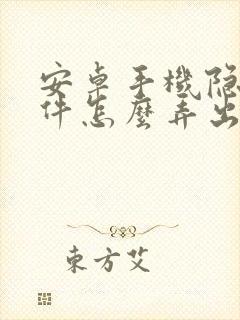 安卓手機隐
件怎麽弄出
東方艾